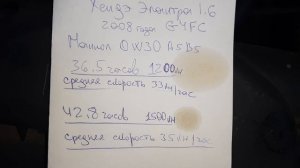 Хендэ Элантра 1.6
2008 года G4FC
Мотюл 0W30 A5B5
36.5 часов 1200км
средняя скорость 33км/час
42.8 часов 1500км
средняя скорость 35км/час